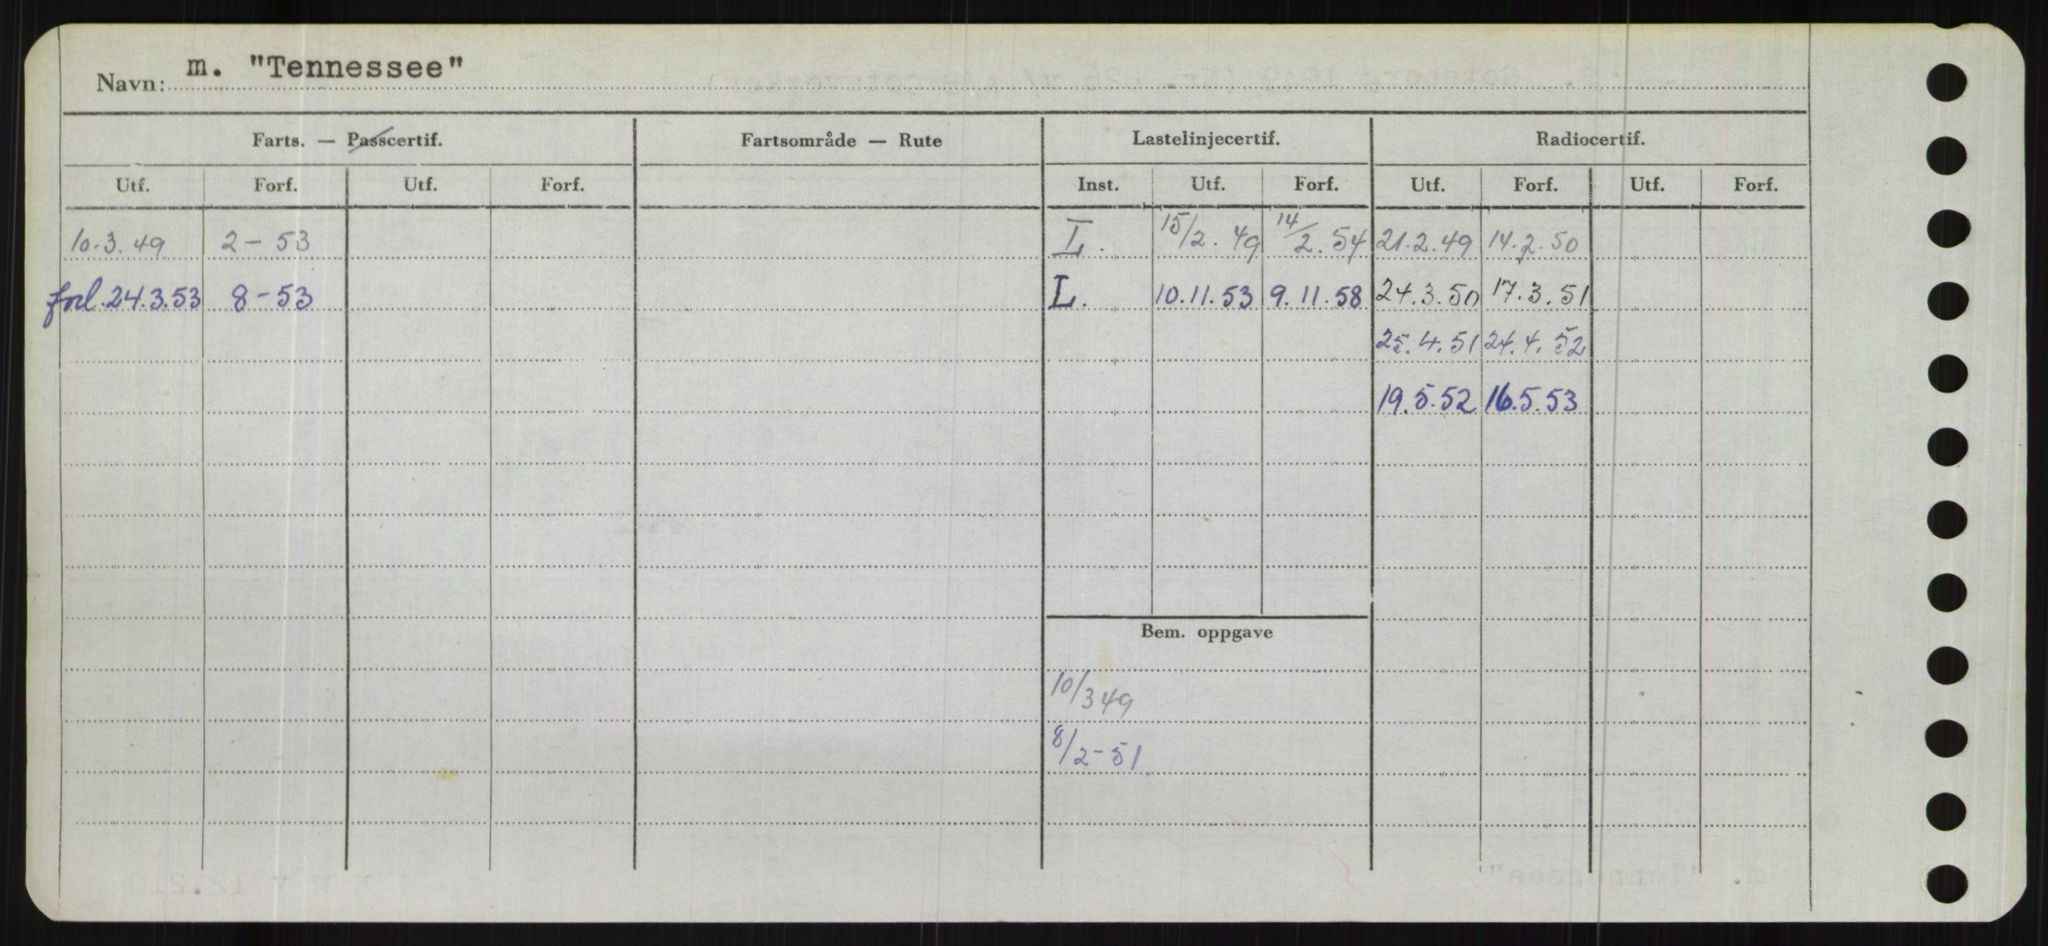 Navn: m. "Tennessee"
Farts. — Passcertif. Fartsområde — Rute Lastelinjecertif. Radiocertif.
Utf. Forf. Utf. Forf. Inst. Utf. Forf. Utf. Forf. Utf. Forf.
10.3.49 2-53 L. 15/2.49 14/2.54 21.2.49 14.2.50
forl. 24.3.53 8-53 L. 10.11.53 9.11.58 24.3.50 17.3.51
25.4.51 24.4.52
19.5.52 16.5.53
Bem. oppgave
10/3 49
8/2-51